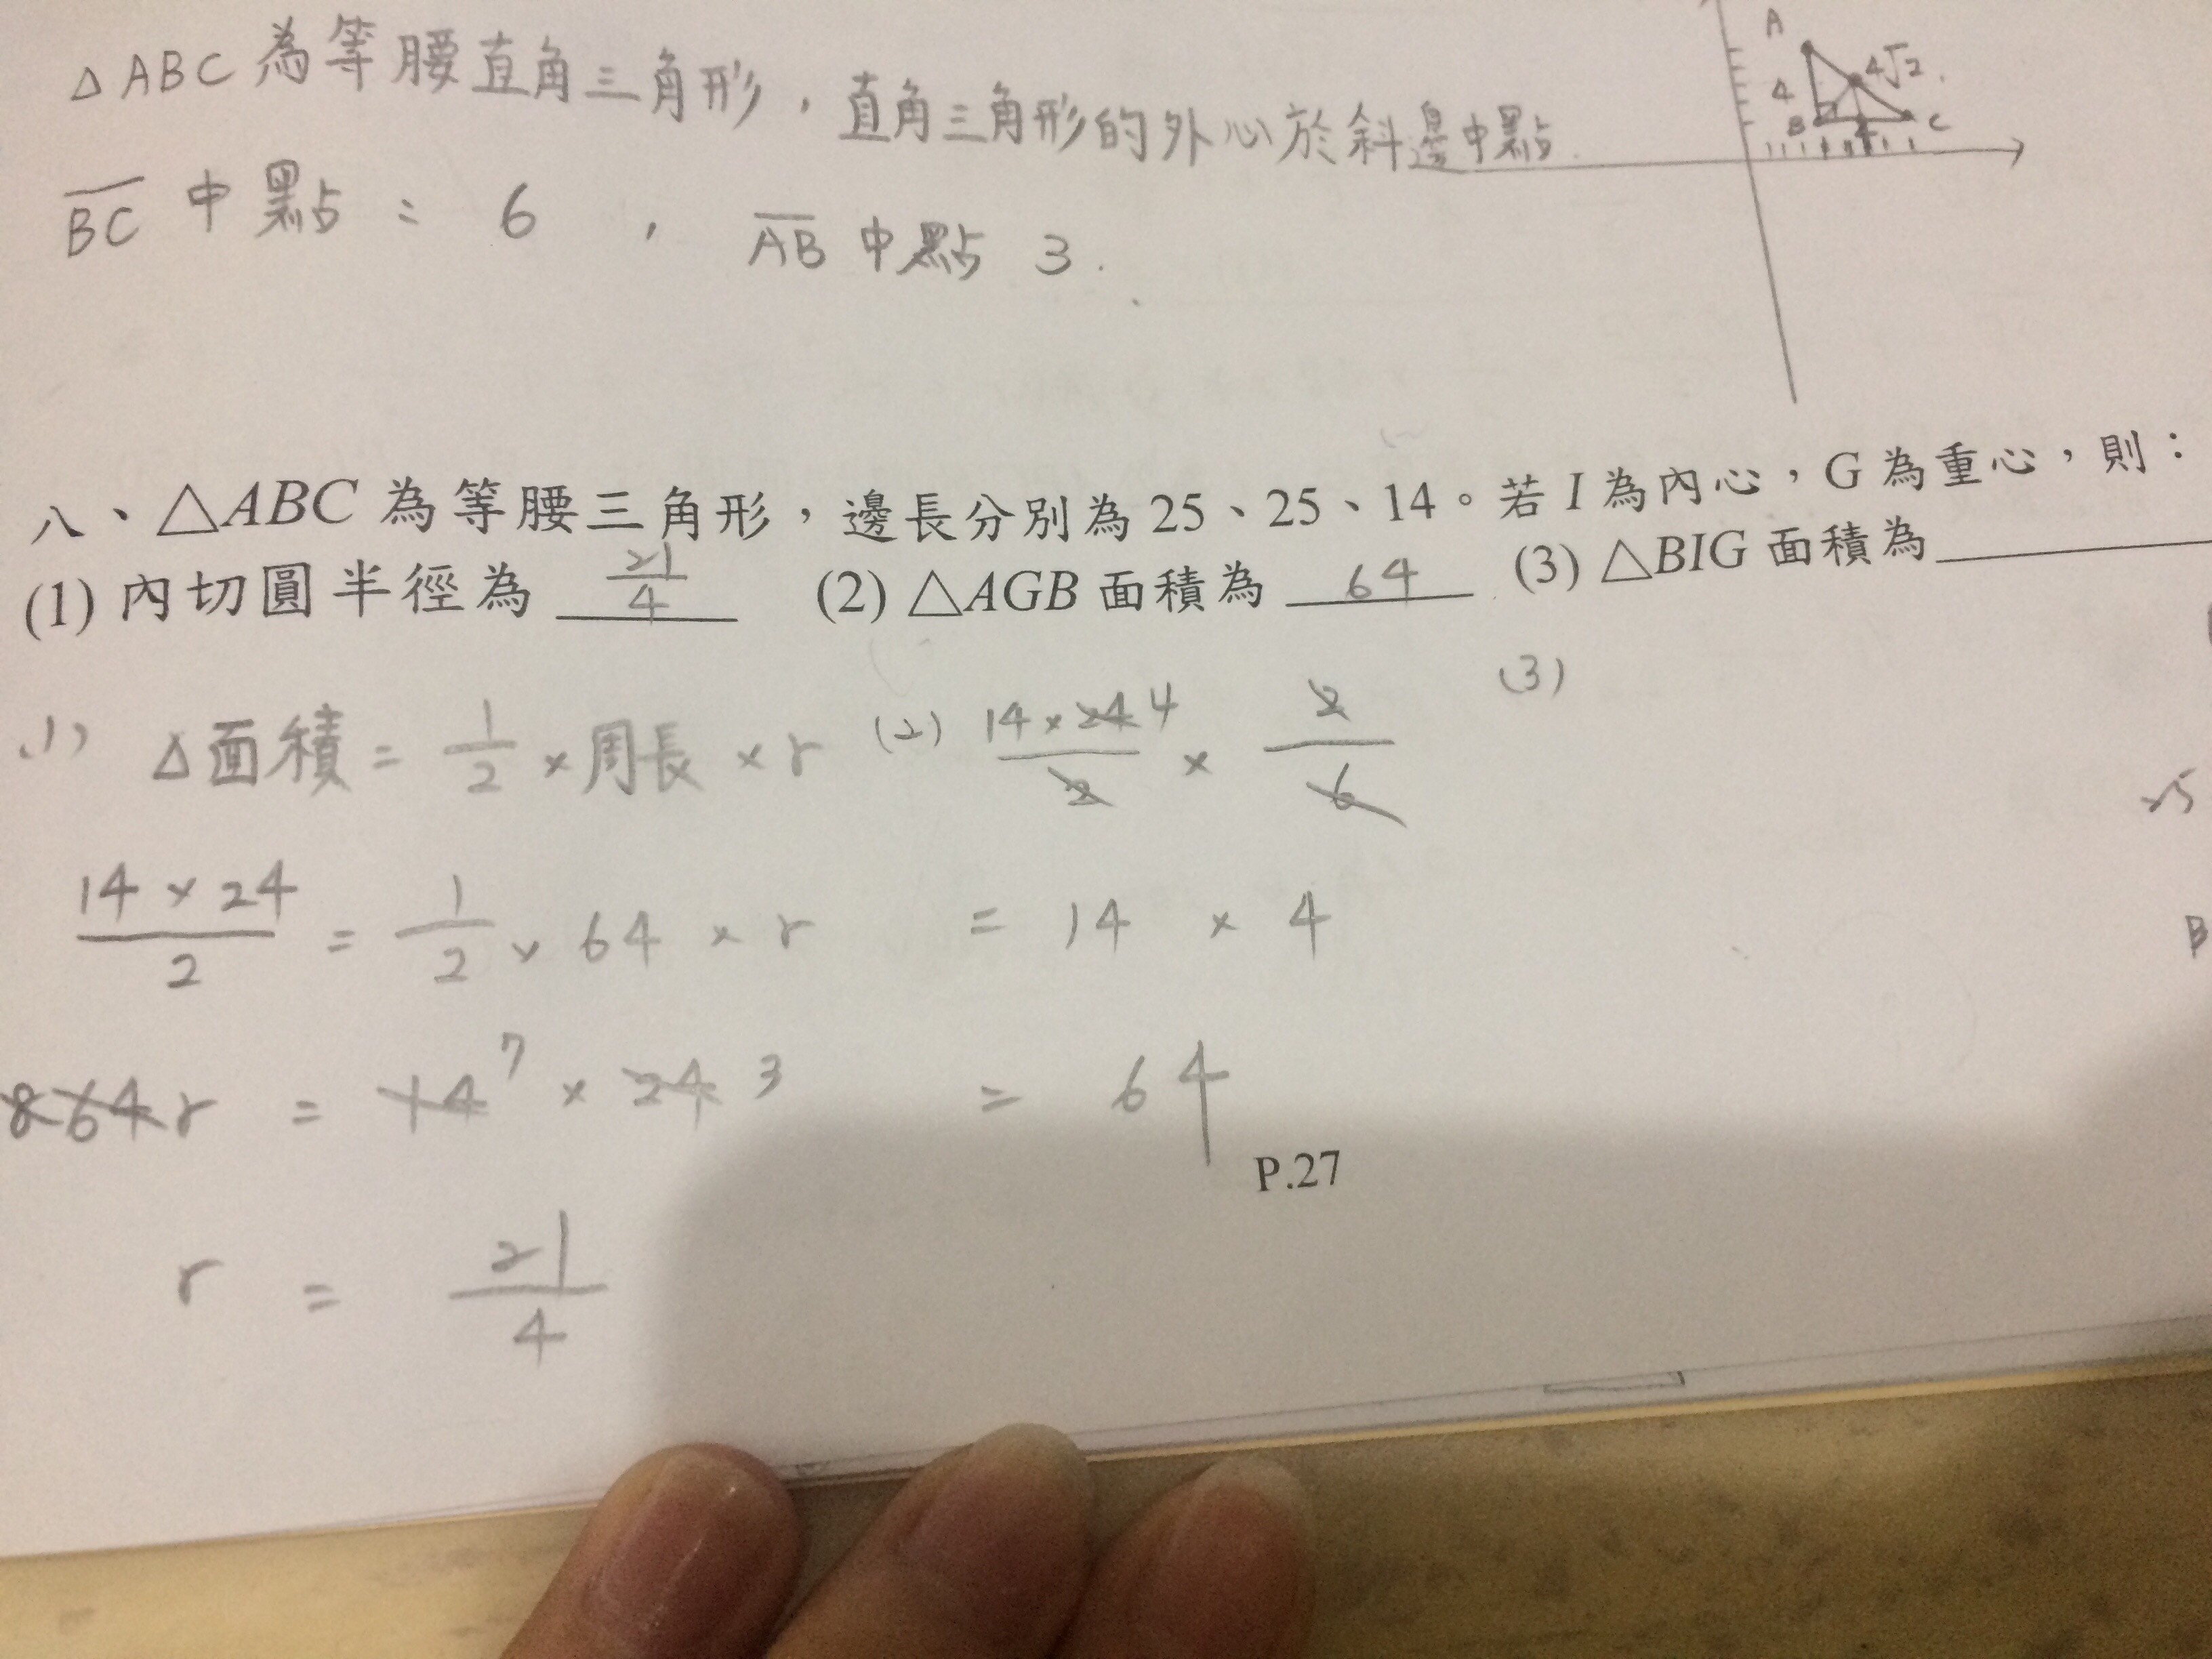 △ABC 為等腰直角三角形，直角三角形的外心於斜邊中點.
A
4√2.
4
B
C
BC 中點 = 6 , AB 中點 3.
八、△ABC 為等腰三角形，邊長分別為 25、25、14。若 I 為內心，G 為重心，則：
(1) 內切圓半徑為 21/4 (2) △AGB 面積為 64 (3) △BIG 面積為
(1) △面積 = 1/2 × 周長 × r
14 × 24 / 2 = 1/2 × 64 × r
8 64 r = 14 7 × 24 3
r = 21/4
(2) 14 × 24 4 / 2 × 2/6
= 14 × 4
= 64
(3)
25
B
P.27